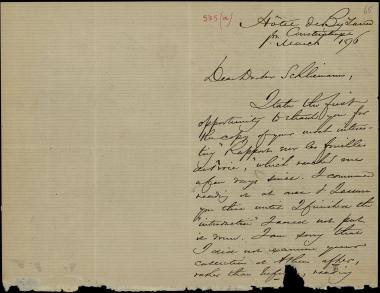 65
575 (a)
Hôtel de Byzance
Constantinople
March 1876
Dear Doctor Schliemann,
I take the first
opportunity to thank you for
the copy of your most interes-
ting "Rapport sur les fouilles
de Troie," which reached me
a few days since. I commenced
reading it at once & I assure
you that until I finished the
"introduction" I could not put
it down. I am sorry that
I did not examine your
collection at Athens after,
rather than before, reading